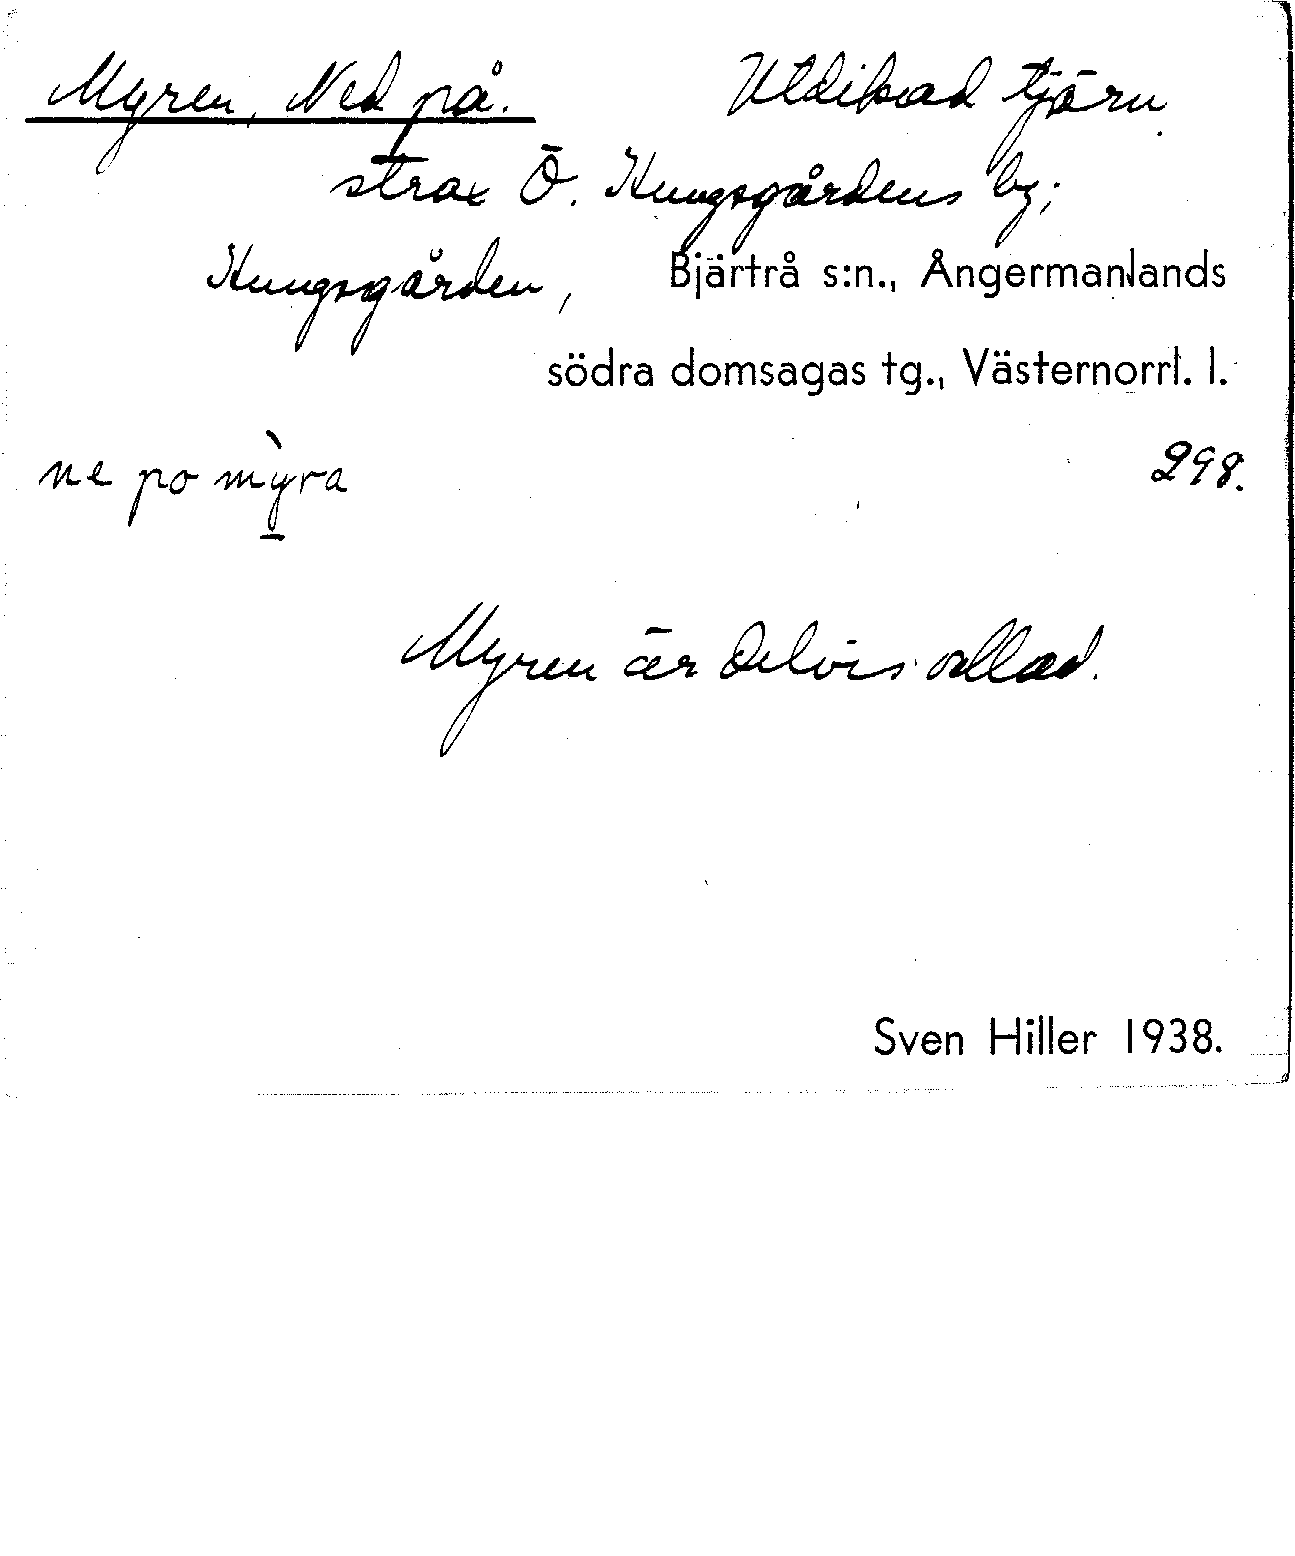 Myren, Ned på. Utdikad tjärn
strax Ö. Kungsgårdens by;
Kungsgården, Bjärtrå s:n., Ångermanlands
södra domsagas tg., Västernorrl. l.
ne po mỳra 298.
Myren är delvis odlad.
Sven Hiller 1938.